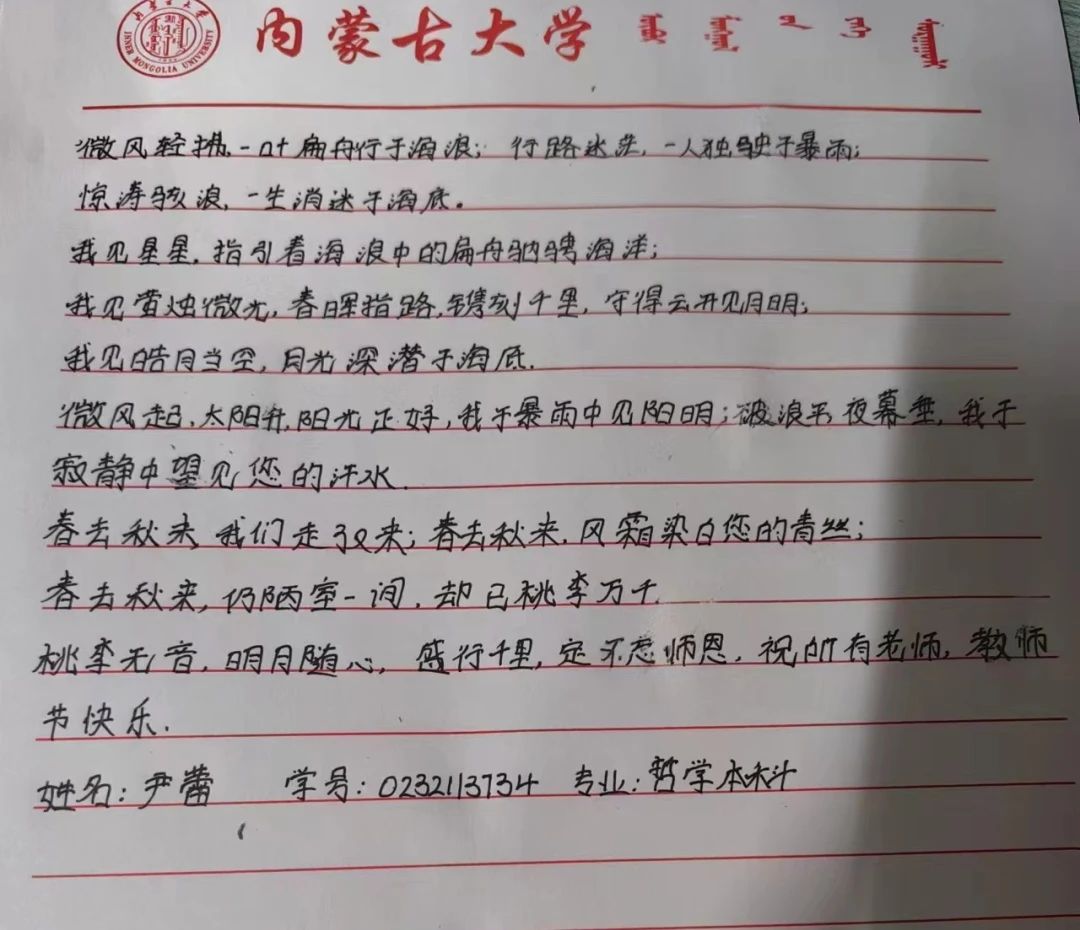 INNER MONGOLIA UNIVERSITY
内蒙古大学
微风轻携,一叶扁舟行于海浪;行路迷茫,一人独驶于暴雨;
惊涛骇浪,一生消迷于海底。
我见星星,指引着海浪中的扁舟驰骋海洋;
我见萤烛微光,春晖指路,镌刻千里,守得云开见月明;
我见皓月当空,月光深潜于海底.
微风起,太阳升,阳光正好,我于暴雨中见阳明;破浪平,夜幕垂,我于
寂静中望见您的汗水.
春去秋来,我们走了又来;春去秋来,风霜染白您的青丝;
春去秋来,仍陋室一间,却已桃李万千.
桃李无音,明月随心,盛行千里,定不忘师恩,祝所有老师,教师
节快乐.
姓名:尹蕾 学号:0232113734 专业:哲学本科